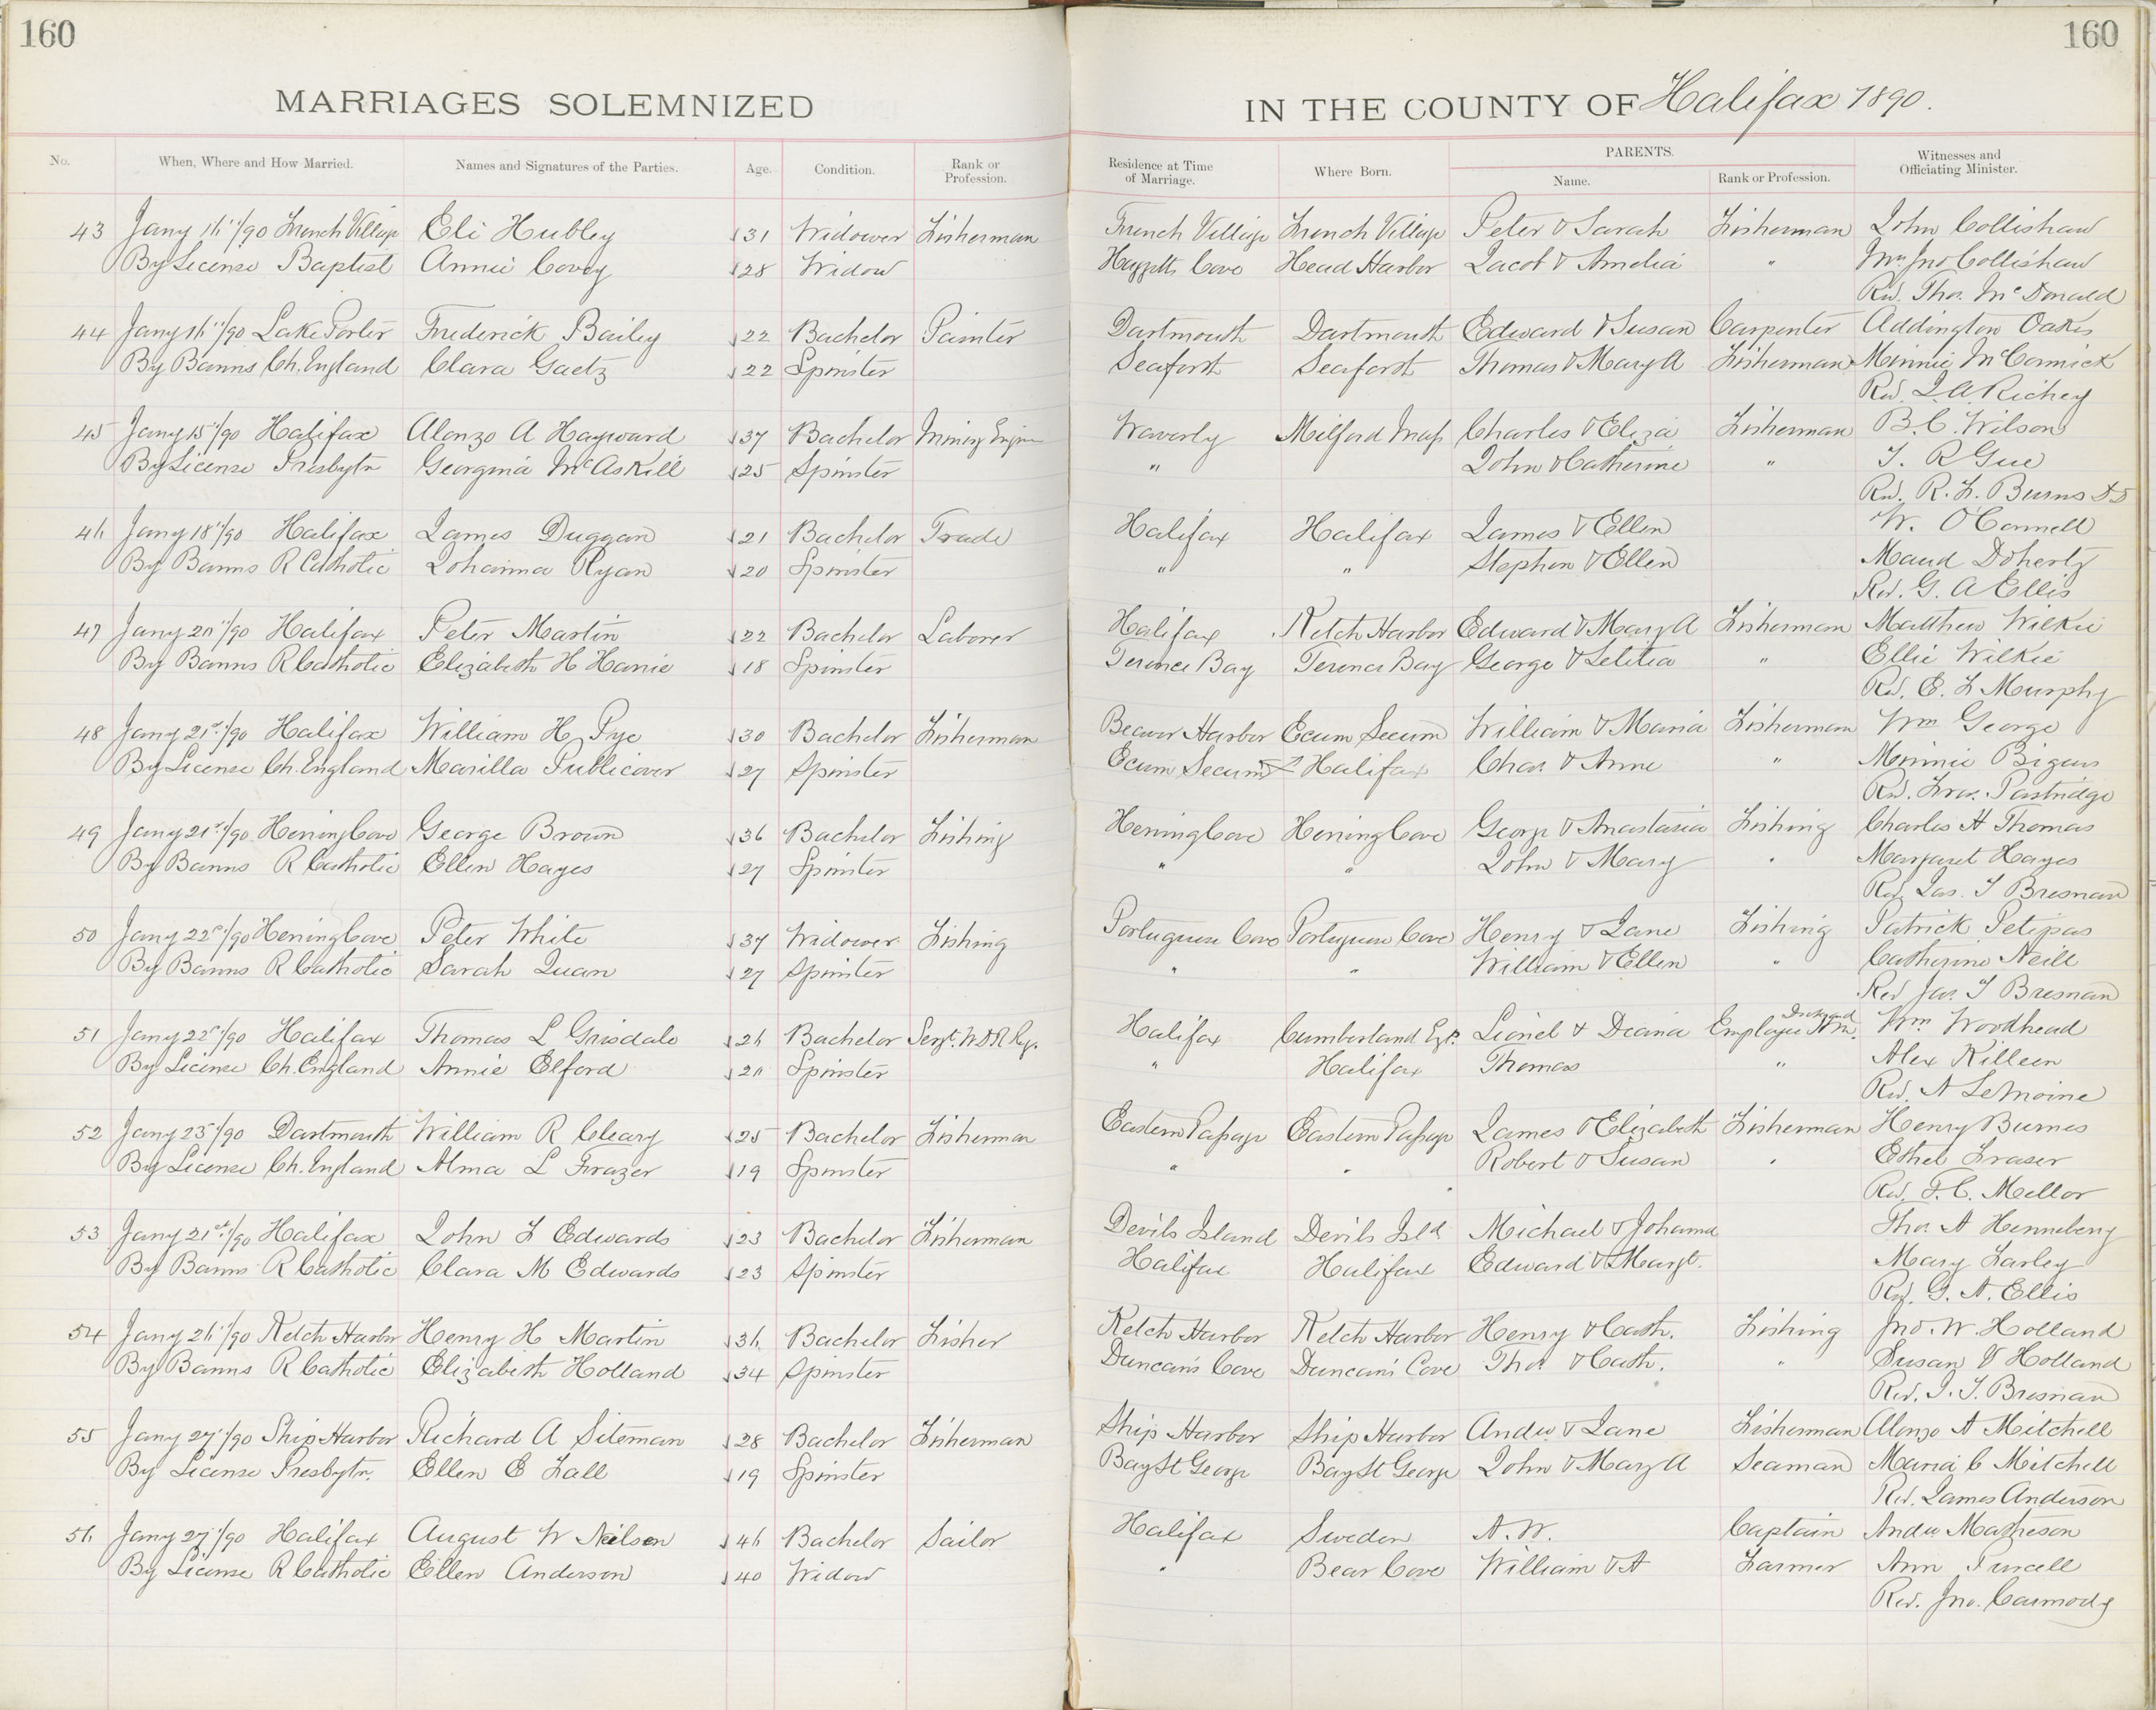 160
160
MARRIAGES SOLEMNIZED
IN THE COUNTY OF Halifax 1890.
No. When, Where and How Married. Names and Signatures of the Parties. Age. Condition. Rank or Profession. Residence at Time of Marriage. Where Born. PARENTS. Name. Rank or Profession. Witnesses and Officiating Minister.
43 Jany 16"/90 French Village Eli Hubley 31 Widower Fisherman French Village French Village Peter & Sarah Fisherman John Collishaw
By License Baptist Annie Covey 28 Widow Cove Head Harbor Jacob & Amelia " Mrs Jno Collishaw
Rev. Thos. McDonald
44 Jany 16"/90 Lake Porter Frederick Bailey 22 Bachelor Painter Dartmouth Dartmouth Edward & Susan Carpenter Addington Oakes
By Banns Ch. England Clara Gaetz 22 Spinster Seaforth Seaforth Thomas & Mary A Fisherman Minnie McCormick
Rev. J. A. Richey
45 Jany 15"/90 Halifax Alonzo A Hayward 37 Bachelor Mining Engine Waverly Milford Mass Charles & Eliza Fisherman B. C. Wilson
By License Presbytn Georgina McAskill 25 Spinster " John & Catherine " T. R Gue
Rev. R. F. Burns DD
46 Jany 18"/90 Halifax James Duggan 21 Bachelor Trade Halifax Halifax James & Ellen W. O'Connell
By Banns R Catholic Johanna Ryan 20 Spinster " " Stephen & Ellen Maud Doherty
Rev. G. A Ellis
47 Jany 20"/90 Halifax Peter Martin 22 Bachelor Laborer Halifax Ketch Harbor Edward & Mary A Fisherman Matthew Wilkie
By Banns R Catholic Elizabeth H Harnie 18 Spinster Terence Bay Terence Bay George & Letitia " Ellie Wilkie
Rev. E. F Murphy
48 Jany 21st/90 Halifax William H Pye 30 Bachelor Fisherman Beaver Harbor Ecum Secum William & Maria Fisherman Wm George
By License Ch. England Marilla Publicover 27 Spinster Ecum Secum Halifax Chas. & Anne " Minnie Bigens
Rev. Fras. Partridge
49 Jany 21st/90 Herring Cove George Brown 36 Bachelor Fishing Herring Cove Herring Cove George & Anastasia Fishing Charles H Thomas
By Banns R Catholic Ellen Hayes 27 Spinster " " John & Mary " Margaret Hayes
Rev Jas. T Bresnan
50 Jany 22d/90 Herring Cove Peter White 37 Widower Fishing Portuguese Cove Portuguese Cove Henry & Jane Fishing Patrick Petipas
By Banns R Catholic Sarah Quan 27 Spinster " " William & Ellen " Catherine Neill
Rev Jas. T Bresnan
51 Jany 22d/90 Halifax Thomas L Grisdale 26 Bachelor Sergt. W D R Rg. Halifax Cumberland Egld. Lionel & Diana Employee Wm Woodhead
By License Ch. England Annie Elford 20 Spinster " Halifax Thomas " Alex Killeen
Rev. A LeMoine
52 Jany 23d/90 Dartmouth William R Cleary 25 Bachelor Fisherman Eastern Passage Eastern Passage James & Elizabeth Fisherman Henry Burnes
By License Ch. England Alma L Frazer 19 Spinster " " Robert & Susan " Ethel Fraser
Rev. T. C. Mellor
53 Jany 21st/90 Halifax John F Edwards 23 Bachelor Fisherman Devils Island Devils Isld Michael & Johanna Thos. A Henneberry
By Banns R Catholic Clara M Edwards 23 Spinster Halifax Halifax Edward & Margt. Mary Farley
Rev. G. A. Ellis
54 Jany 26"/90 Ketch Harbor Henry H Martin 36 Bachelor Fisher Ketch Harbor Ketch Harbor Henry & Cath. Fishing Jno. W. Holland
By Banns R Catholic Elizabeth Holland 34 Spinster Duncan's Cove Duncan's Cove Thos & Cath. " Susan V Holland
Rev. J. T. Bresnan
55 Jany 27"/90 Ship Harbor Richard A Siteman 28 Bachelor Fisherman Ship Harbor Ship Harbor Andw. & Jane Fisherman Alonzo A Mitchell
By License Presbytn. Ellen E Fall 19 Spinster Bay St George Bay St George John & Mary A Seaman Maria C Mitchell
Rev. James Anderson
56 Jany 27"/90 Halifax August W Neilson 46 Bachelor Sailor Halifax Sweden A. W. Captain Andw Matheson
By License R Catholic Ellen Anderson 40 Widow " Bear Cove William & A Farmer Ann Purcell
Rev. Jno. Carmody